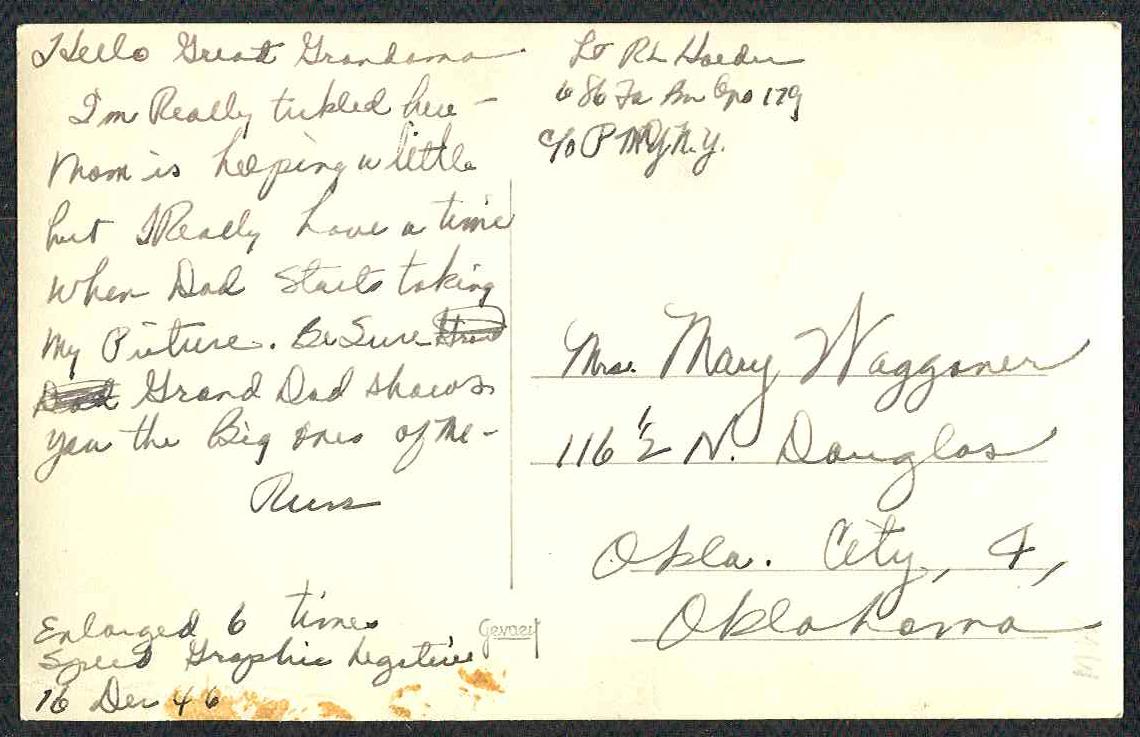 Hello Great Grandama
I'm Really tickled here -
Mom is helping a little
but I Really have a time
when Dad Starts taking
my Picture. Be Sure
Grand Dad shows
you the Big ones of Me -
Russ
Enlarged 6 times
Speed Graphic Negative
16 Dec 46
Gevaert
Lt RL
686 Fa Bn Apo 179
c/o P M N.Y.
Mrs. Mary Waggoner
116 1/2 N. Douglas
Okla. City, 4,
Oklahoma